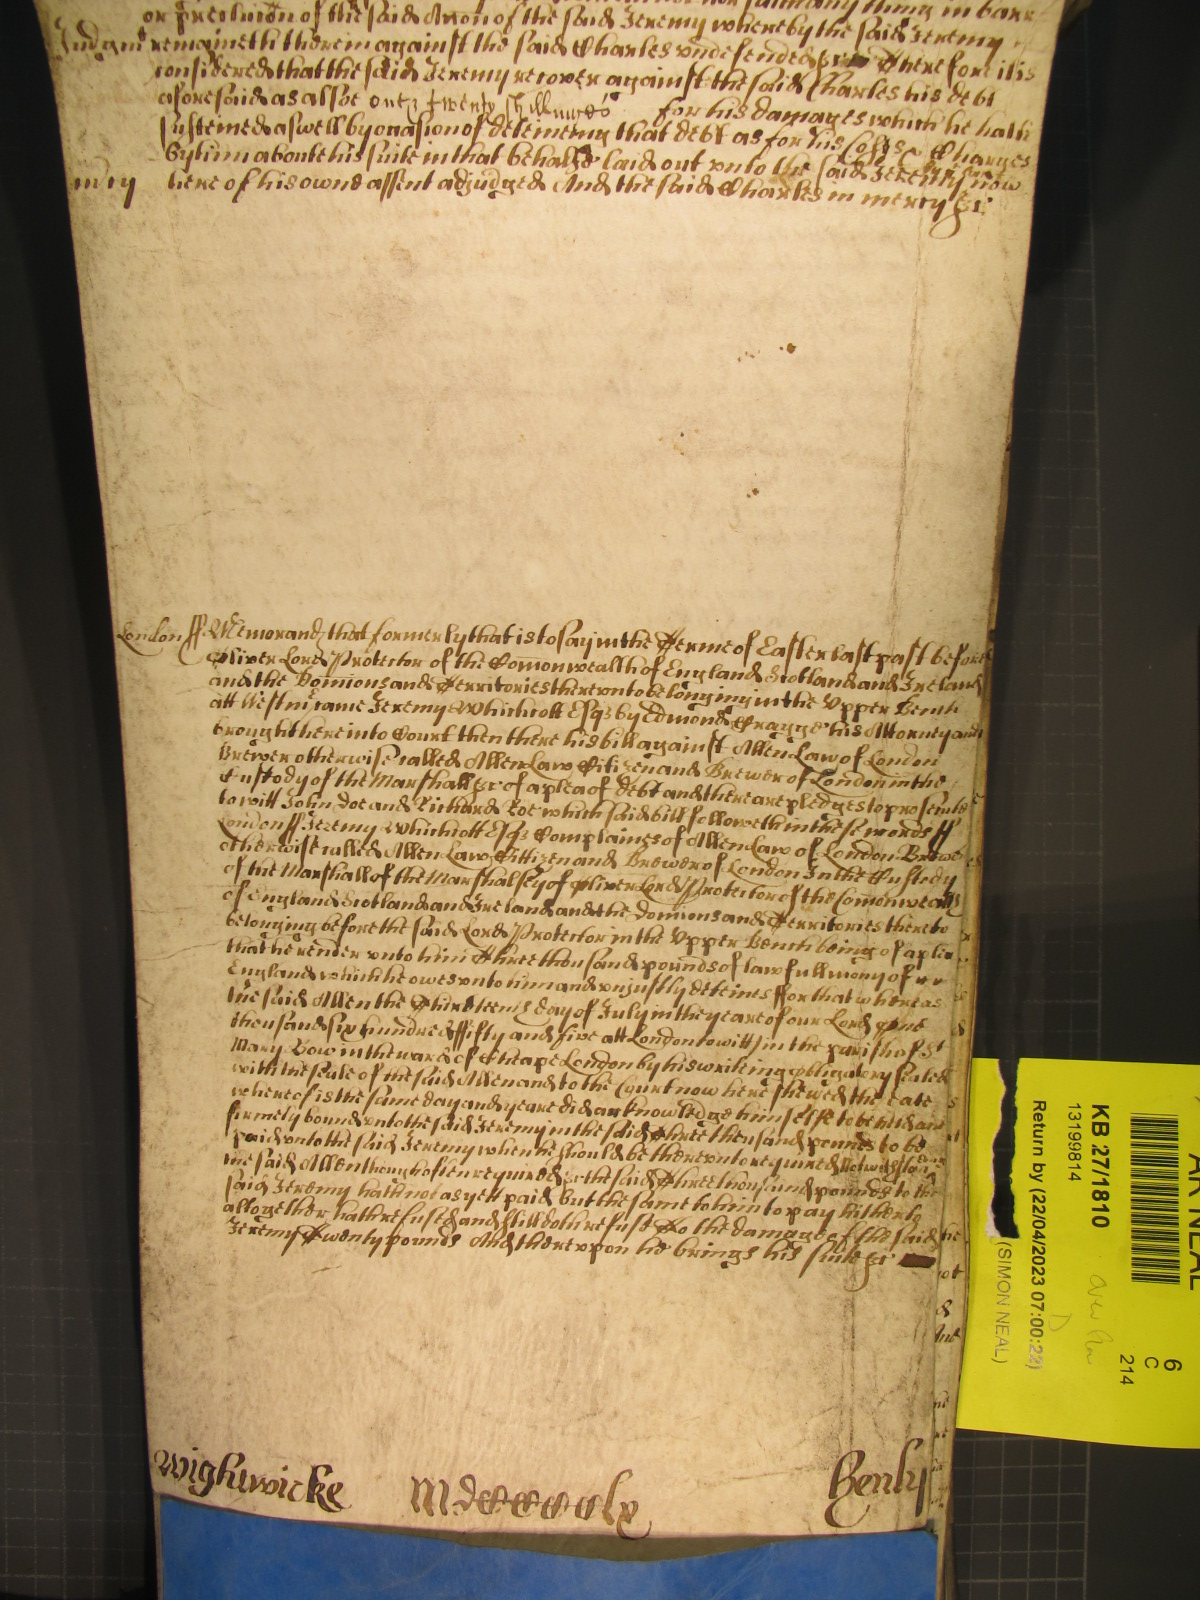 or preclusion of the said Accon of the said Jeremy whereby the said Jeremy
Judgmt remaineth therein against the said Charles undefended &c Therefore it is
considered that the said Jeremy recover against the said Charles his debt
aforesaid as alsoe one & twenty shillings for his damages which he hath
susteined aswell by occasion of deteineing that debt as for his Costs & Charges
by him aboute his suite in that behalfe laid out unto the said Jeremy now
mercy here of his owne assent adjudged And the said Charles in mercy &c
London ss Memorand that formerly that is to say in the Terme of Easter last past before
Oliver Lord Protector of the Comonwealth of England Scotland and Ireland
and the Dominions and Territories thereunto belonging in the Upper Bench
att Westm came Jeremy Whichcott Esqr by Edmond Cragge his Attorney and
brought here into Court then there his bill against Allen Law of London
Brewer otherwise called Allen Law Citizen and Brewer of London in the
Custody of the Marshall &c of a plea of debt and there are pledges to prosecute
to witt John Doe and Richard Roe which said bill followeth in these words ss
London ss Jeremy Whichcott Esqr Complaines of Allen Law of London Brewer
otherwise called Allen Law Cittizen and Brewer of London In the Custody
of the Marshall of the Marshalsey of Oliver Lord Protector of the Comonwealth
of England Scotland and Ireland and the Domions and Territories thereto
belonging before the said Lord Protector in the Upper Bench being of a plea
that he render unto him Three thousand pounds of lawfull mony of
England which he owes unto him and unjustly deteines ffor that whereas
the said Allen the Thirteenth day of July in the yeare of our Lord One
thousand six hundred ffifty and five att London to witt in the parish of St
Mary Bow in the ward of Cheape London by his writeing obligatory sealed
with the seale of the said Allen and to the Court now here shewed the date
whereof is the same day and yeare did acknowledge himselfe to be held and
firmely bound unto the said Jeremy in the said Three thousand pounds to be
paid unto the said Jeremy when he should be thereunto required Notwithstanding
the said Allen though often required &c the said Three thousand pounds to the
said Jeremy hath not as yett paid but the same to him to pay hitherto
altogether hath refused and still doth refuse To the damage of the said
Jeremy Twenty pounds And thereupon he brings his suite &c
Wightwicke Mdccccclx Henly
KB 27/1810
13199814
Return by (22/04/2023 07:00:22)
(SIMON NEAL)
6
C
214